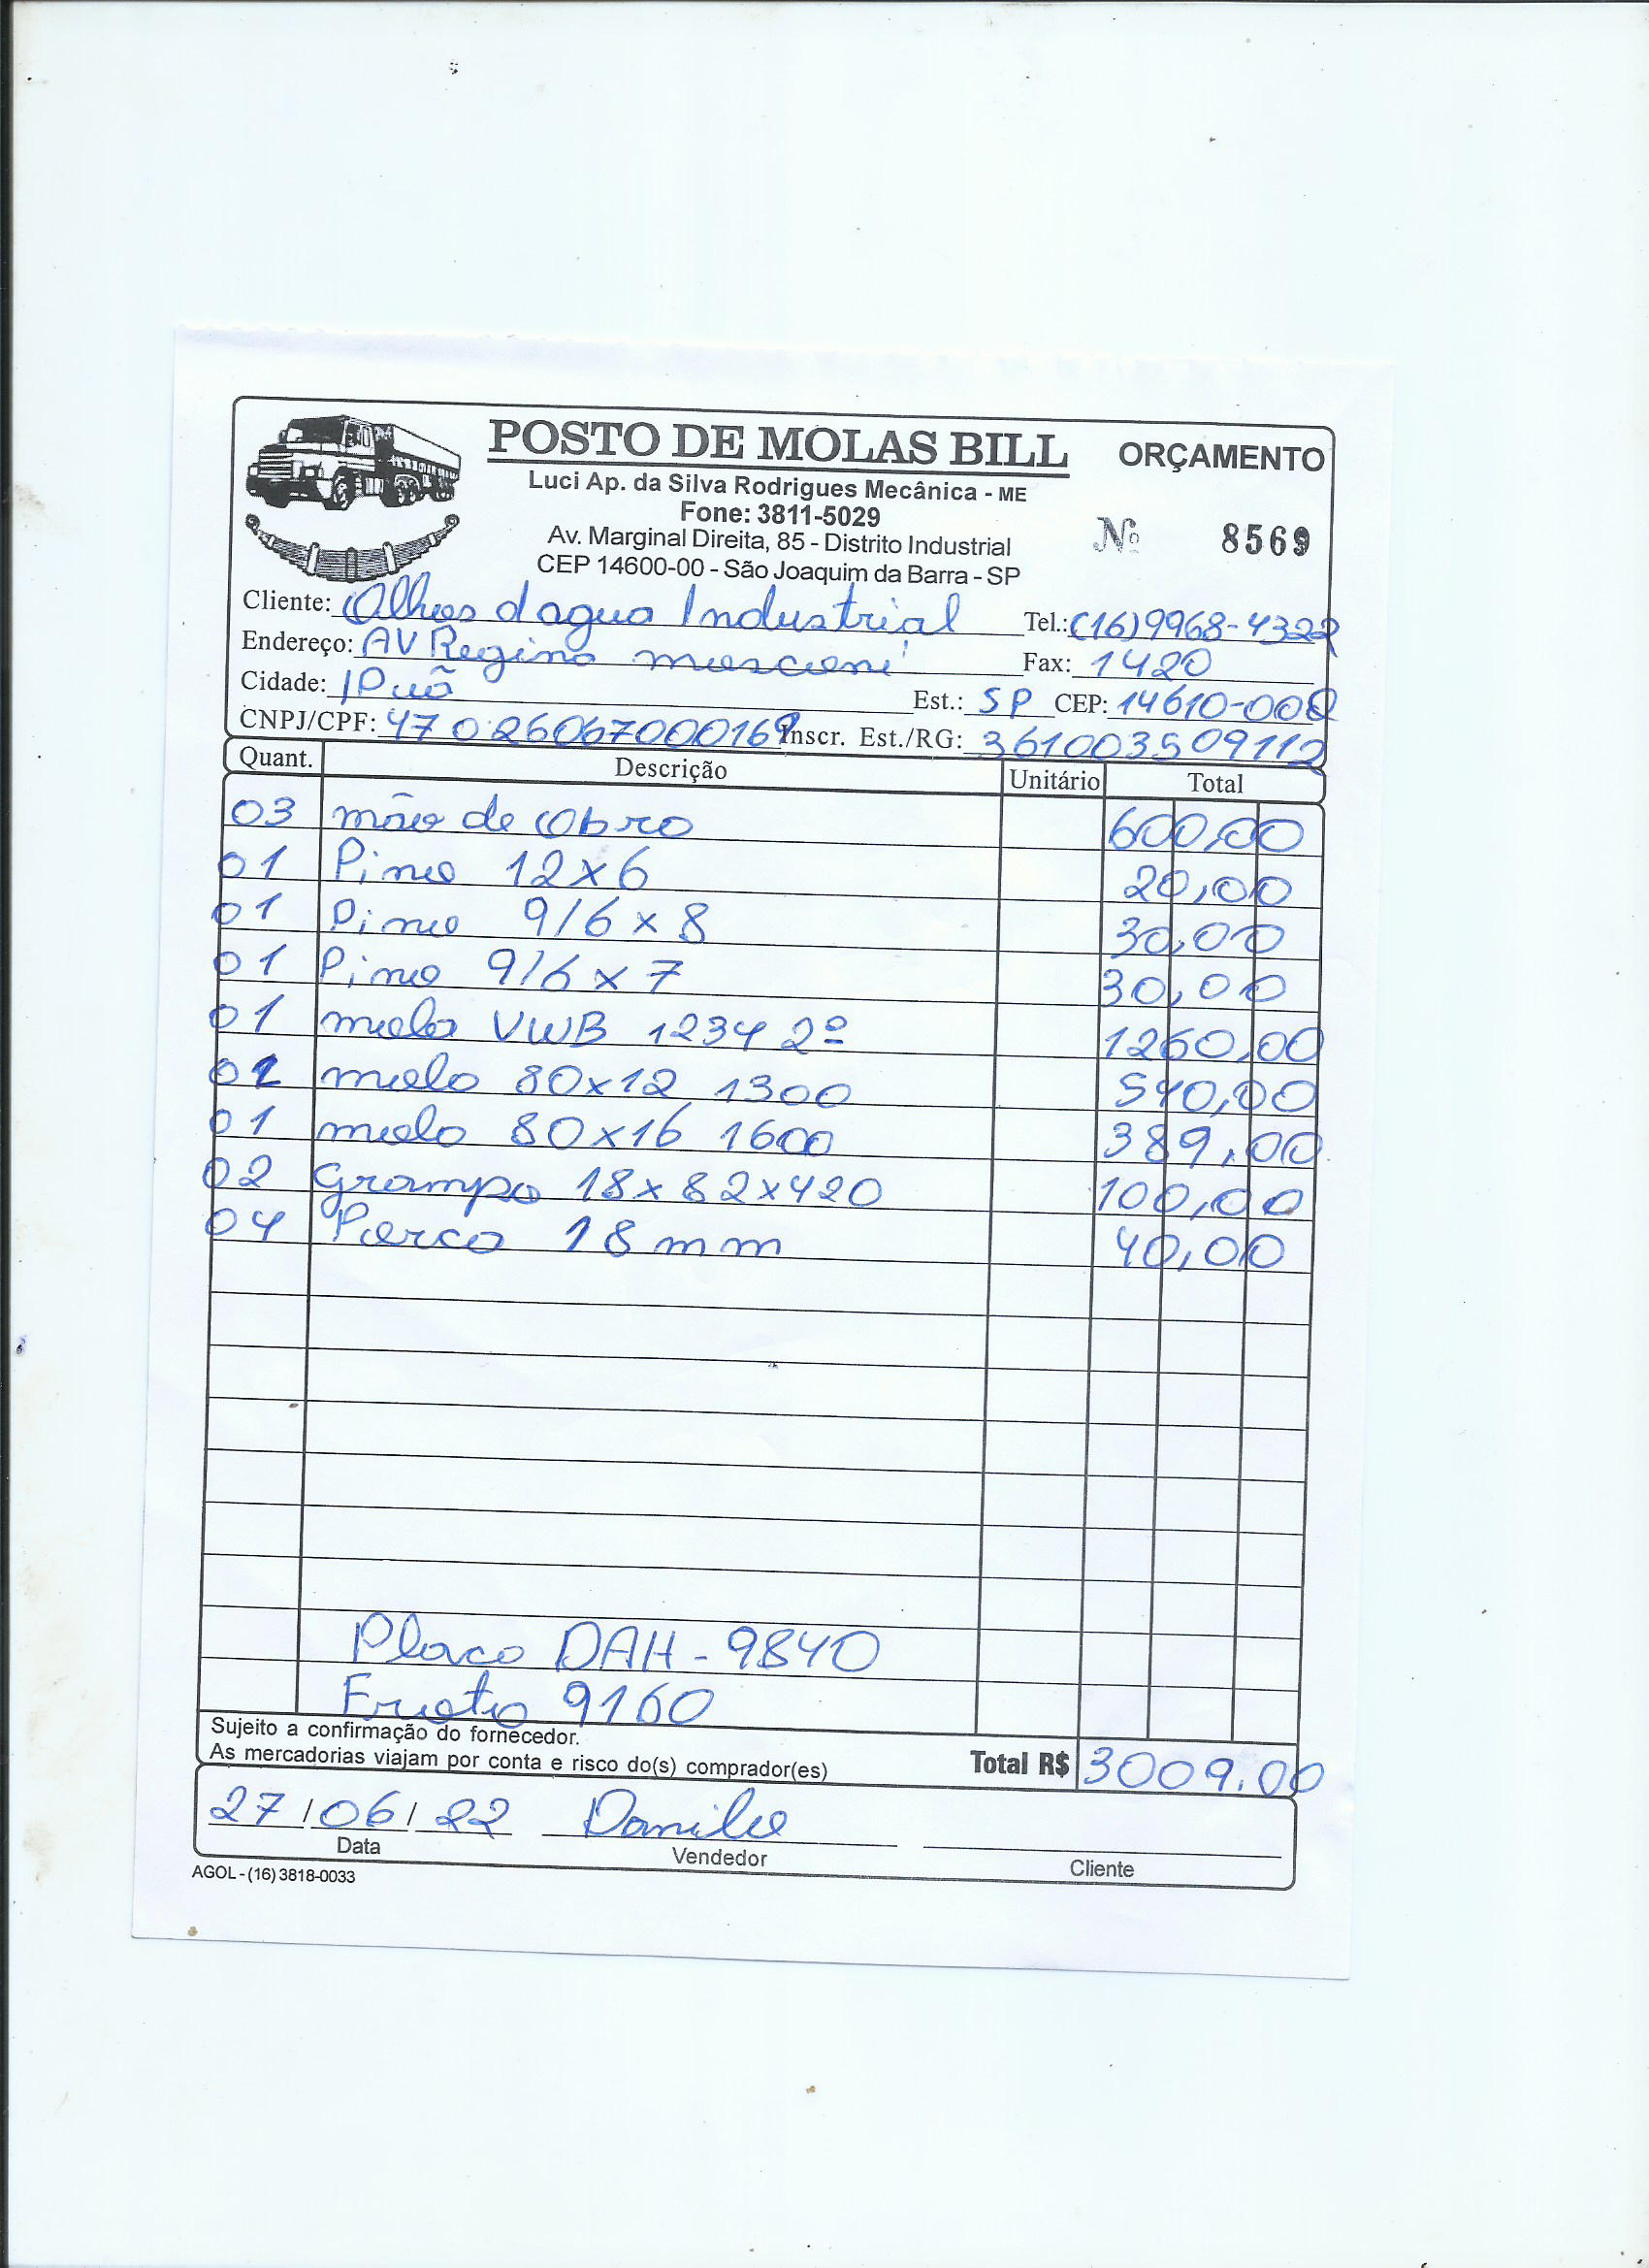 POSTO DE MOLAS BILL
ORÇAMENTO
Luci Ap. da Silva Rodrigues Mecânica - ME
Fone: 3811-5029
Av. Marginal Direita, 85 - Distrito Industrial
CEP 14600-00 - São Joaquim da Barra - SP
Nº 8569
Cliente: Olhos d agua Industrial Tel.: (16)9968-4322
Endereço: AV Regina mosconi Fax: 1420
Cidade: IPuã Est.: SP CEP: 14610-008
CNPJ/CPF: 47026067000169 Inscr. Est./RG: 361003509112
Quant. Descrição Unitário Total
03 mão de Obra 600,00
01 Pino 12x6 20,00
01 Pino 9/6 x 8 30,00
01 Pino 9/6 x 7 30,00
01 mola VWB 1234 2º 1260,00
02 mola 80x12 1300 540,00
01 mola 80x16 1600 389,00
02 Grampo 18x82x420 100,00
04 Porca 18mm 40,00
Placa DAH-9840
Frota 9160
Sujeito a confirmação do fornecedor.
As mercadorias viajam por conta e risco do(s) comprador(es)
Total R$ 3009.00
27/06/22 Danilo
Data Vendedor Cliente
AGOL - (16) 3818-0033